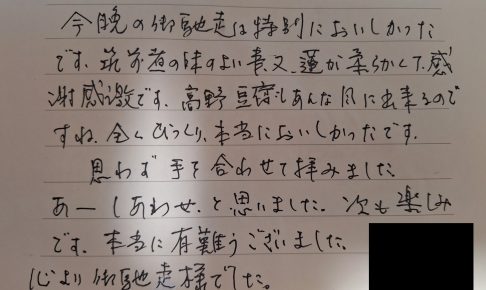 今晩の御馳走は特別においしかった
です。筑前煮の味のよい事又、蓮が柔らかくて、感
謝感激です。高野豆腐もあんな風に出来るので
すね。全くびっくり、本当においしかったです。
思わず手を合わせて拝みました
あーしあわせ、と思いました。次も楽しみ
です。本当に有難うございました。
心より御馳走様でした。